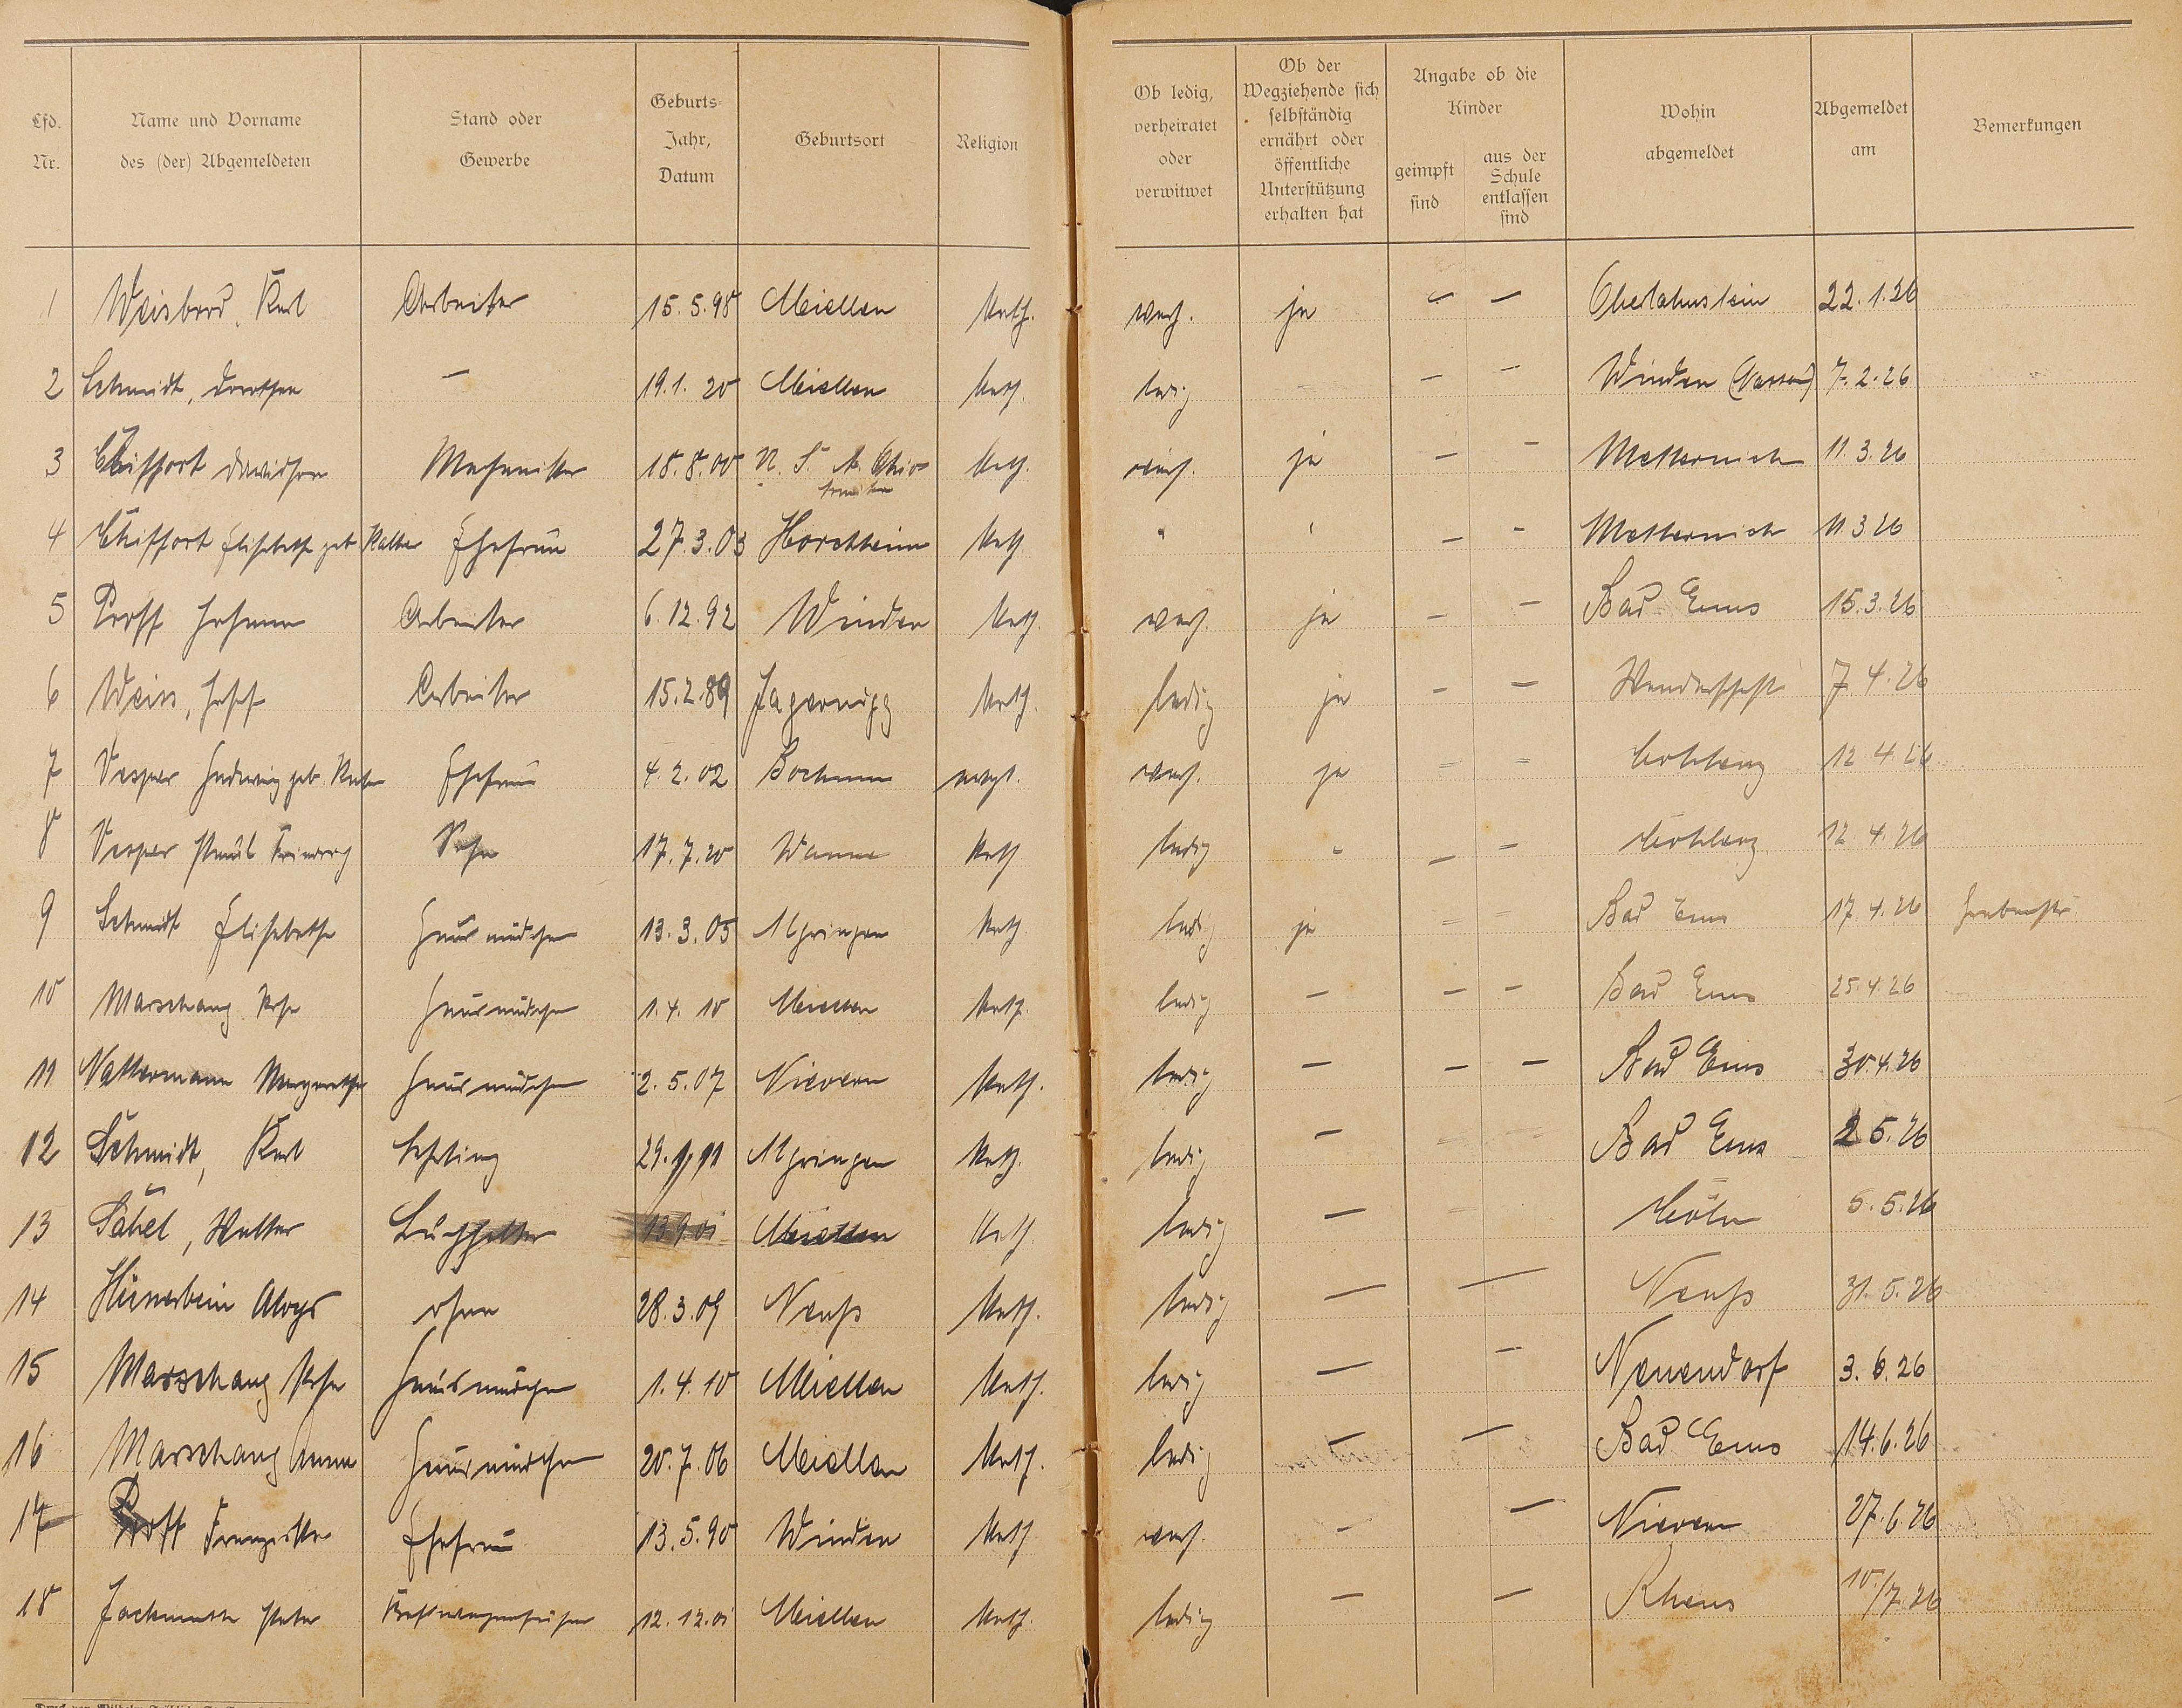 Lfd. Nr. Name und Vorname des (der) Abgemeldeten Stand oder Gewerbe Geburts- Jahr, Datum Geburtsort Religion Ob ledig, verheiratet oder verwitwet Ob der Wegziehende sich selbständig ernährt oder öffentliche Unterstützung erhalten hat Angabe ob die Kinder geimpft sind aus der Schule entlassen sind Wohin abgemeldet Abgemeldet am Bemerkungen
1 Weisbrod, Karl Arbeiter 15.5.98 Miellen kath. verh. ja – – Oberlahnstein 22.1.26
2 Schmidt, Dorothea – 19.1.20 Miellen kath. ledig – – Winden (Nassau) 7.2.26
3 Davidson Mechaniker 18.8.00 N. S. A. Ohio kath. verh. ja – – Metternich 11.3.26
4 Elisabeth geb. Ehefrau 27.3.03 Horchheim kath. " ' – – Metternich 11.3.26
5 Proff Johann Arbeiter 6.12.92 Winden kath. verh. ja – – Bad Ems 15.3.26
6 Weiss, Josef Arbeiter 15.2.89 kath. ledig ja – – Wanderschaft 7.4.26
7 Vesper Hedwig geb. Ehefrau 4.2.02 Bochum evgl. verh. ja = = Coblenz 12.4.26
8 Vesper Paul Friedrich Sohn 17.7.20 Wanne kath. ledig - – – Coblenz 12.4.26
9 Schmidt Elisabeth Hausmädchen 13.3.05 kath. ledig ja = = Bad Ems 17.4.26
10 Marschang Rosa Hausmädchen 1.4.10 Miellen kath. ledig – – – Bad Ems 25.4.26
11 Nattermann Margarethe Hausmädchen 2.5.07 Nievern kath. ledig – – – Bad Ems 30.4.26
12 Schmidt, Karl Lehrling 29.1.11 kath. ledig – Bad Ems 2.5.26
13 Säbel, Walter Buchhalter Miellen kath. ledig – Cöln 5.5.26
14 Hünerbein Aloys ohne 28.3.09 Neuß kath. ledig – – Neuß 31.5.26
15 Marschang Rosa Hausmädchen 1.4.10 Miellen kath. ledig – – Neuendorf 3.6.26
16 Marschang Anna Hausmädchen 20.7.06 Miellen kath. ledig – – Bad Ems 14.6.26
17 Proff Franziska Ehefrau 13.5.90 Winden kath. verh. – – Nievern 27.6.26
18 Jachmuth Peter Kraftwagenführer 12.12.01 Miellen kath. ledig – – Rhens 10/7.26